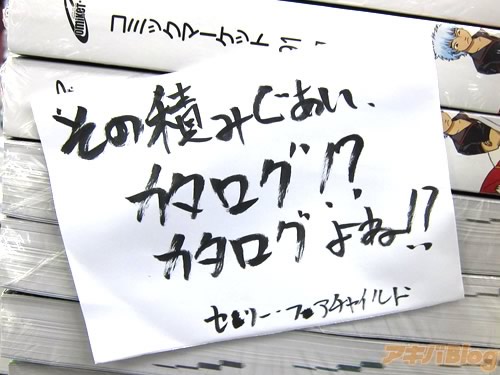 コミックマーケット 91
その積みぐあい、
カタログ!?
カタログよね!?
セシリー・フェアチャイルド
アキバBlog